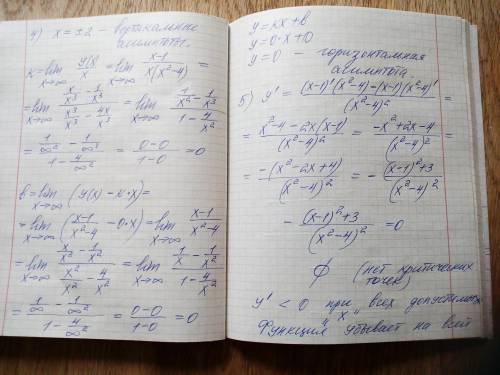 4) x = ±2 - вертикальные
асимптоты.
k = lim x→∞ y(x)/x = lim x→∞ (x-1)/(x(x²-4)) =
= lim x→∞ (x/x³ - 1/x³)/(x³/x³ - 4x/x³) = lim x→∞ (1/x² - 1/x³)/(1 - 4/x²)
= (1/∞² - 1/∞³)/(1 - 4/∞²) = (0-0)/(1-0) = 0
b = lim x→∞ (y(x) - k·x) =
= lim x→∞ ((x-1)/(x²-4) - 0·x) = lim x→∞ (x-1)/(x²-4)
= lim x→∞ (x/x² - 1/x²)/(x²/x² - 4/x²) = lim x→∞ (1/x - 1/x²)/(1 - 4/x²)
= (1/∞ - 1/∞²)/(1 - 4/∞²) = (0-0)/(1-0) = 0
y = kx + b
y = 0·x + 0
y = 0 - горизонтальная
асимптота.
5) y' = ((x-1)'(x²-4) - (x-1)(x²-4)')/(x²-4)² =
= (x²-4-2x(x-1))/(x²-4)² = (-x²+2x-4)/(x²-4)² =
= -(x²-2x+4)/(x²-4)² = - ((x-1)²+3)/(x²-4)²
- ((x-1)²+3)/(x²-4)² = 0
∅ (нет критических
точек)
y' < 0 при всех допустимых
"x"
Функция убывает на всей